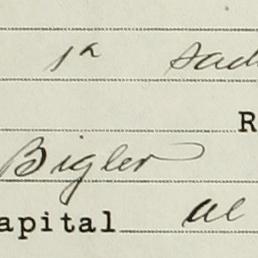 1a sad
R
Bigler
apital al